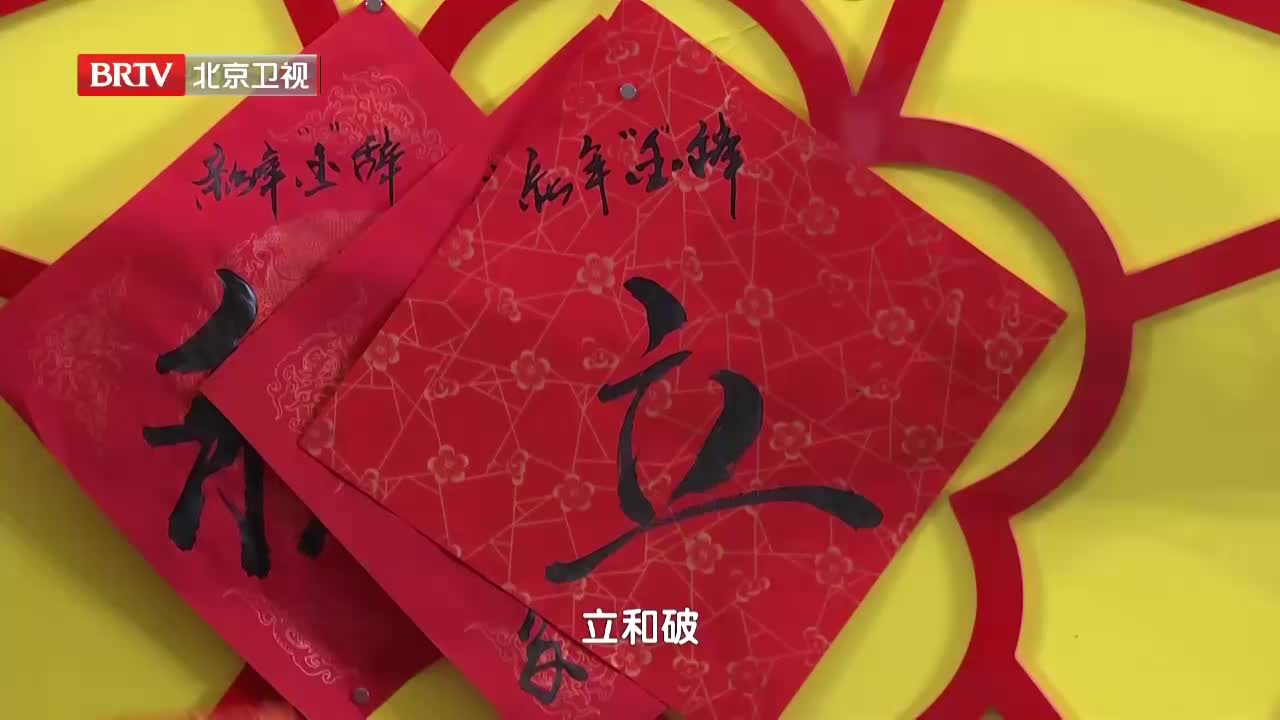 BRTV 北京卫视
新年"玉"辞
新年"玉"辞
立
立和破